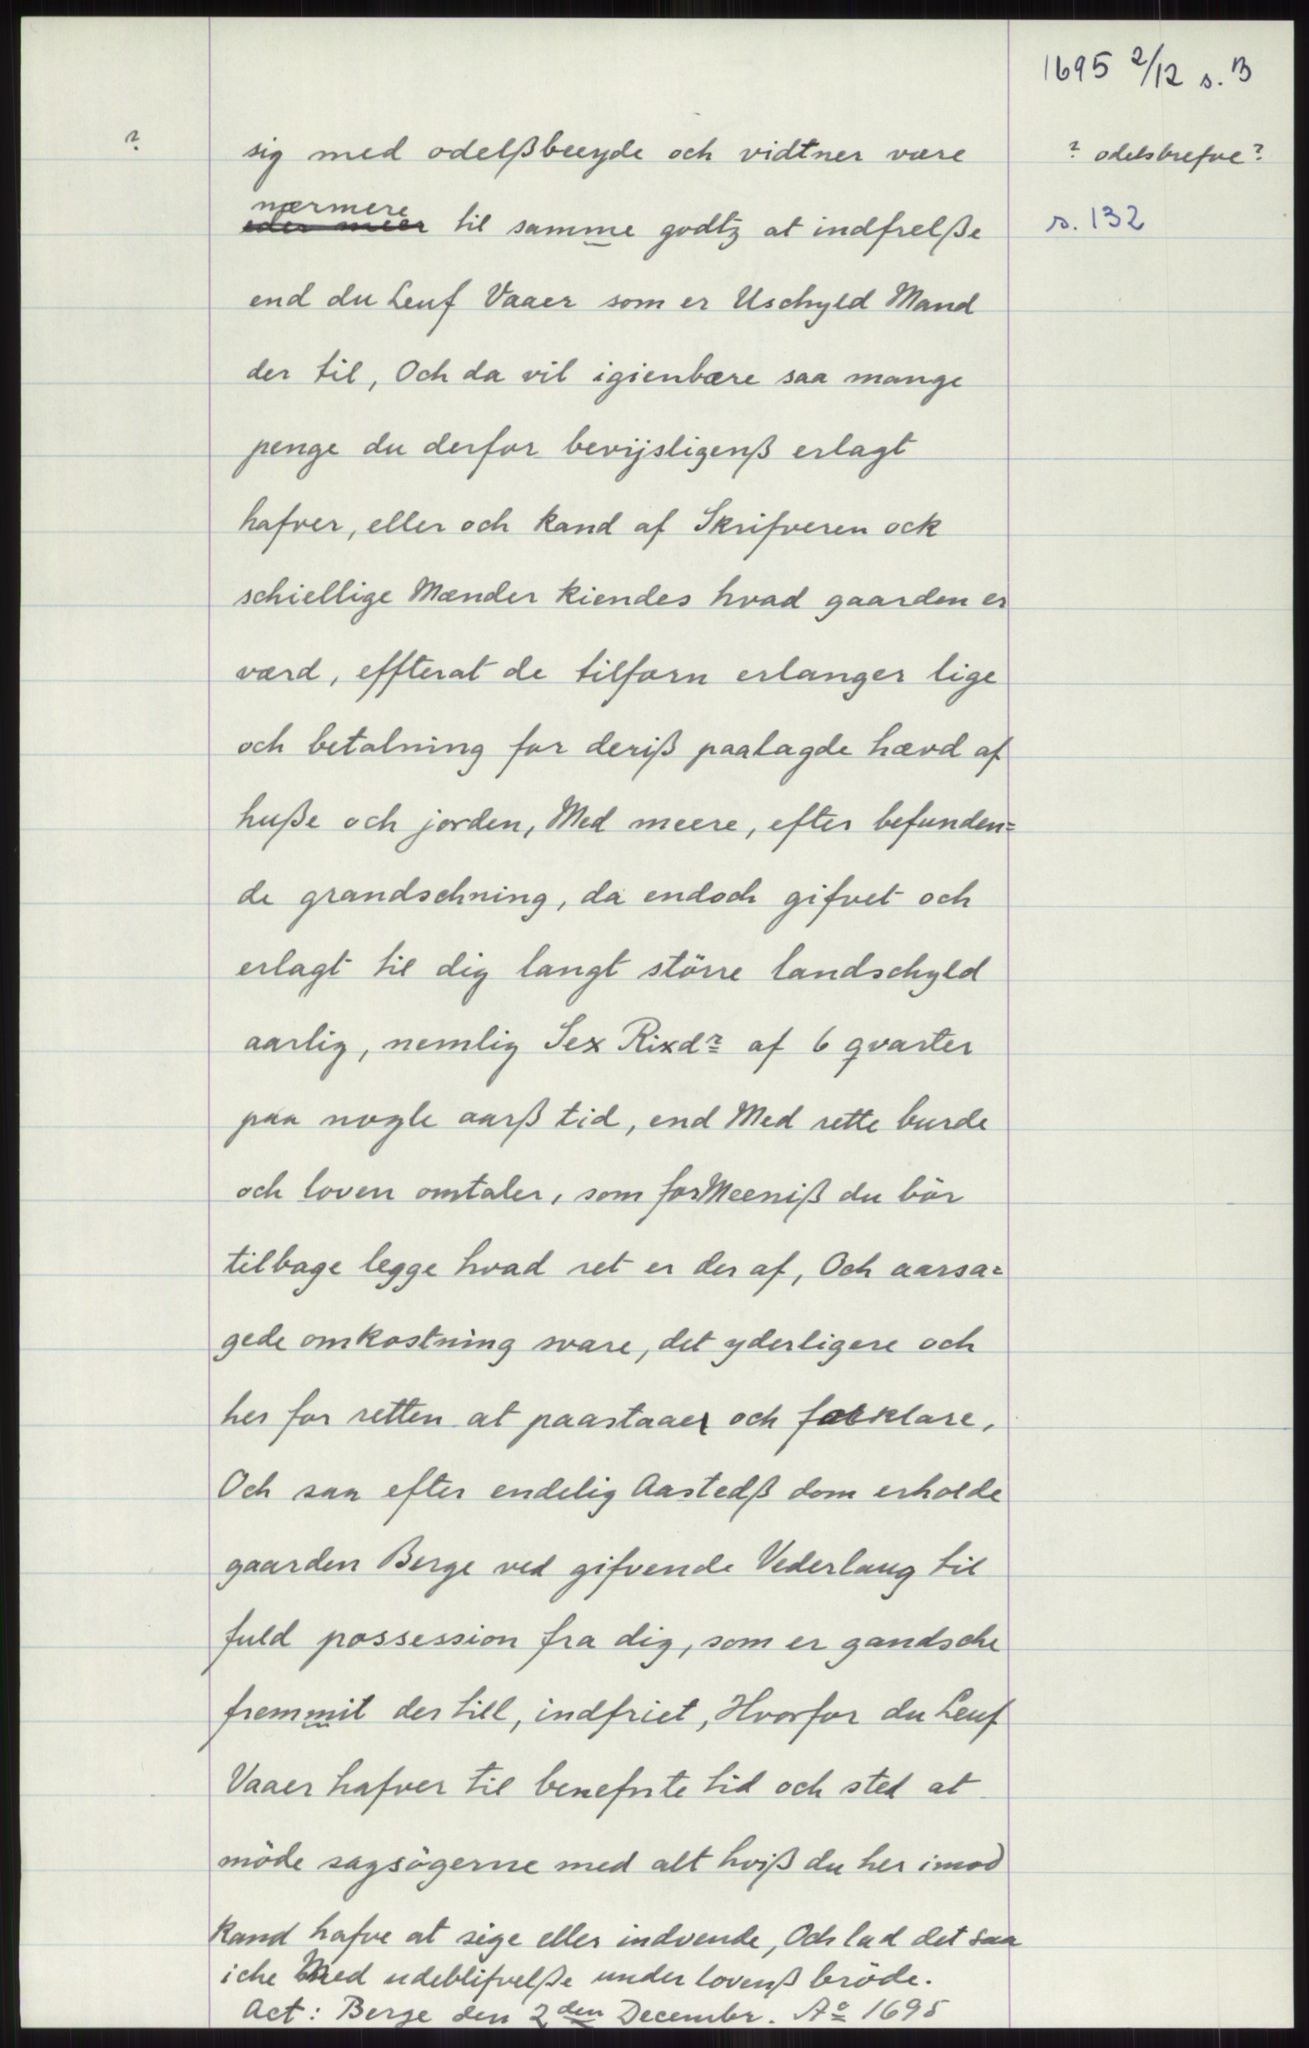 1695 2/12 s. B
? sig med odelßbeeyde och vidtner være ? odelsbrefve?
nærmere
eder meer til samme godtz at indfrelße s. 132
end du Leuf Vaaer som er Uschyld Mand
der til, Och da vil igienbære saa mange
penge du derfor bevijsligenß erlagt
hafver, eller och kand af Skrifveren ock
schiellige Mænder kiendes hvad gaarden er
værd, effterat de tilforn erlanger lige
och betalning for deriß paalagde hævd af
huße och jorden, Med meere, efter befunden=
de grandschning, da endoch gifvet och
erlagt til dig langt större landschyld
aarlig, nemlig Sex Rixdr af 6 qvarter
paa nogle aarß tid, end Med rette burde
och loven omtaler, som forMeeniß du bör
tilbage legge hvad ret er der af, Och aarsa=
gede omkostning svare, det yderligere och
her for retten at paastaaer och forklare,
Och saa efter endelig Aastedß dom erholde
gaarden Berge ved gifvende Vederlaug til
fuld possession fra dig, som er gandsche
fremmit der till, indfriet, Hvorfor du Leuf
Vaaer hafver til benefnte tid och sted at
möde sagsögerne med alt hviß du her imod
kand hafve at sige eller indvende, Och lad det saa
iche Med udeblifvelße under lovenß bröde.
Act: Berge den 2den Decembr. Ao 1695